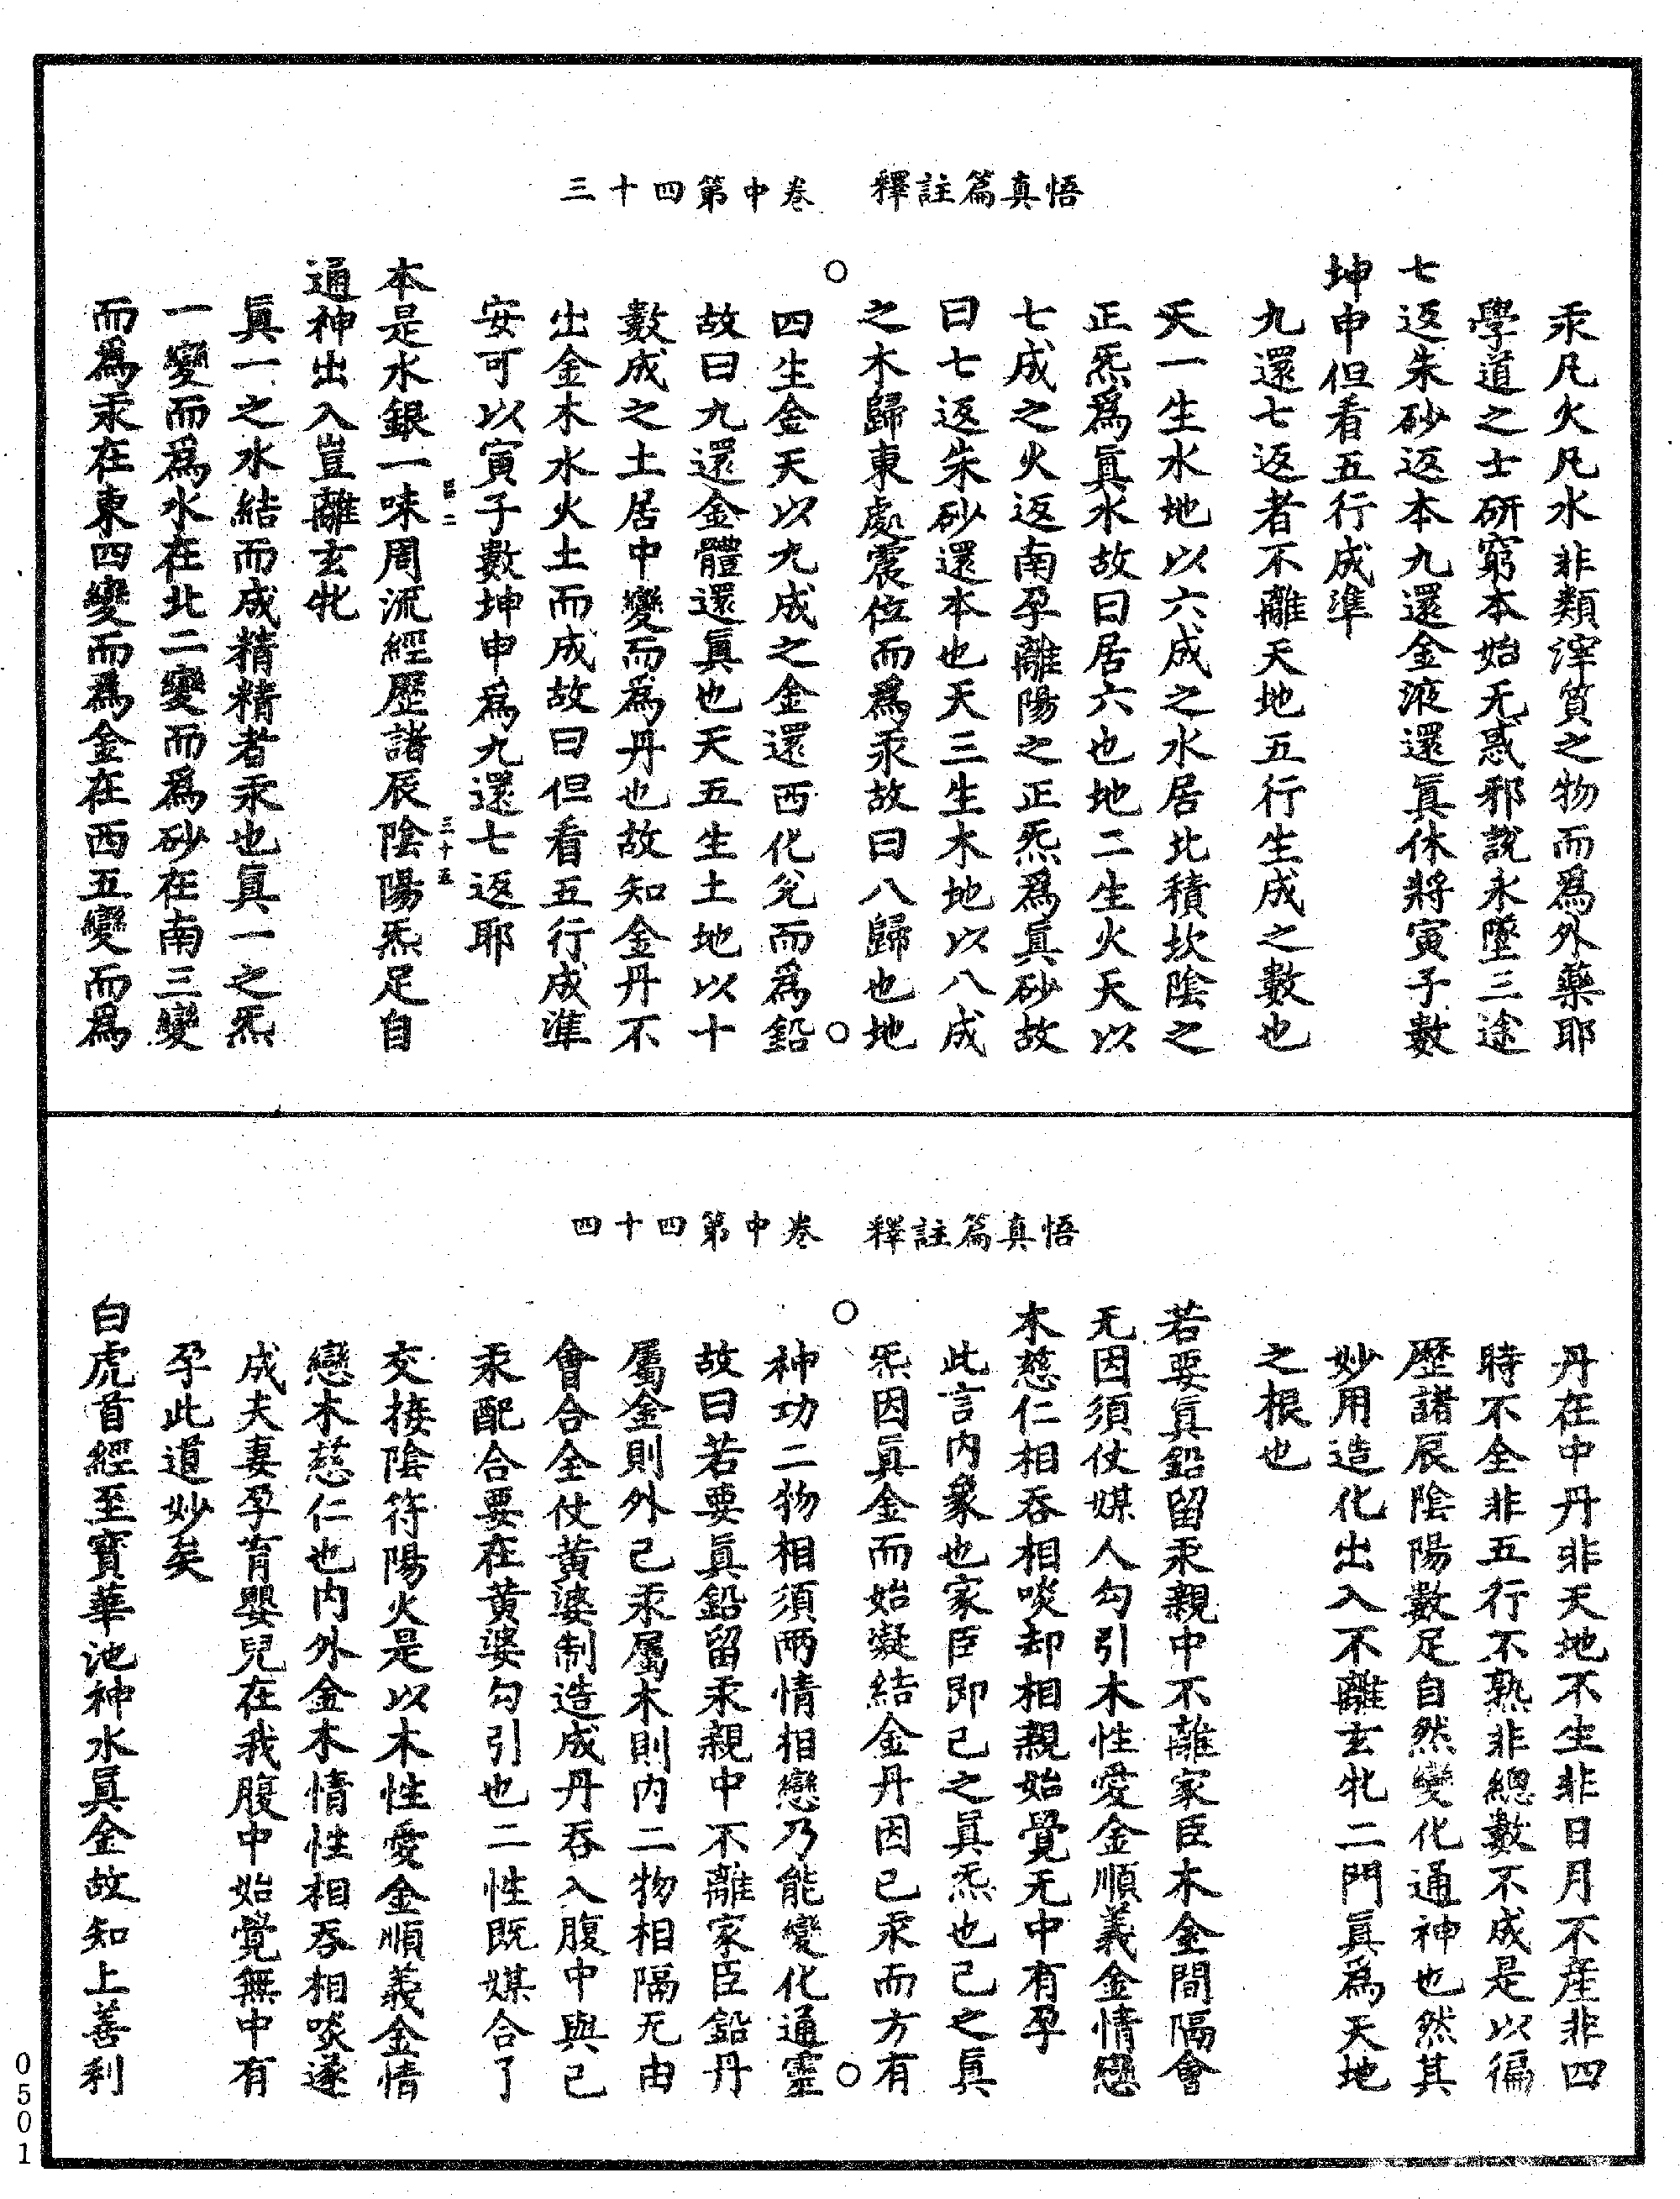 悟真篇註釋　卷中第四十三
汞凡火凡水非類滓質之物而爲外藥耶
學道之士研窮本始无惑邪說永墜三途
七返朱砂返本九還金液還眞休將寅子數
坤申但看五行成準
九還七返者不離天地五行生成之數也
天一生水地以六成之水居北積坎陰之
正炁爲眞水故曰居六也地二生火天以
七成之火返南孕離陽之正炁爲眞砂故
曰七返朱砂還本也天三生木地以八成
之木歸東處震位而爲汞故曰八歸也地
四生金天以九成之金還西化兊而爲鉛
故曰九還金體還眞也天五生土地以十
數成之土居中變而爲丹也故知金丹不
出金木水火土而成故曰但看五行成準
安可以寅子數坤申爲九還七返耶
三十五
本是水銀一味周流經歷諸辰陰陽炁足自
通神出入豈離玄牝
眞一之水結而成精精者汞也眞一之炁
一變而爲水在北二變而爲砂在南三變
而爲汞在東四變而爲金在西五變而爲
悟真篇註釋　卷中第四十四
丹在中丹非天地不生非日月不産非四
時不全非五行不熟非總數不成是以徧
歷諸辰陰陽數足自然變化通神也然其
妙用造化出入不離玄牝二門眞爲天地
之根也
若要眞鉛留汞親中不離家臣木金間隔會
无因須仗媒人勾引木性愛金順義金情戀
木慈仁相吞相啖却相親始覺无中有孕
此言内象也家臣即己之眞炁也己之眞
炁因眞金而始凝結金丹因己汞而方有
神功二物相須两情相戀乃能變化通靈
故曰若要眞鉛留汞親中不離家臣鉛丹
屬金則外己汞屬木則内二物相隔无由
會合全仗黄婆制造成丹吞入腹中與己
汞配合要在黄婆勾引也二性既媒合了
交接陰符陽火是以木性愛金順義金情
戀木慈仁也内外金木情性相吞相啖遂
成夫妻孕育嬰兒在我腹中始覺無中有
孕此道妙矣
白虎首經至寳華池神水眞金故知上善利
0501